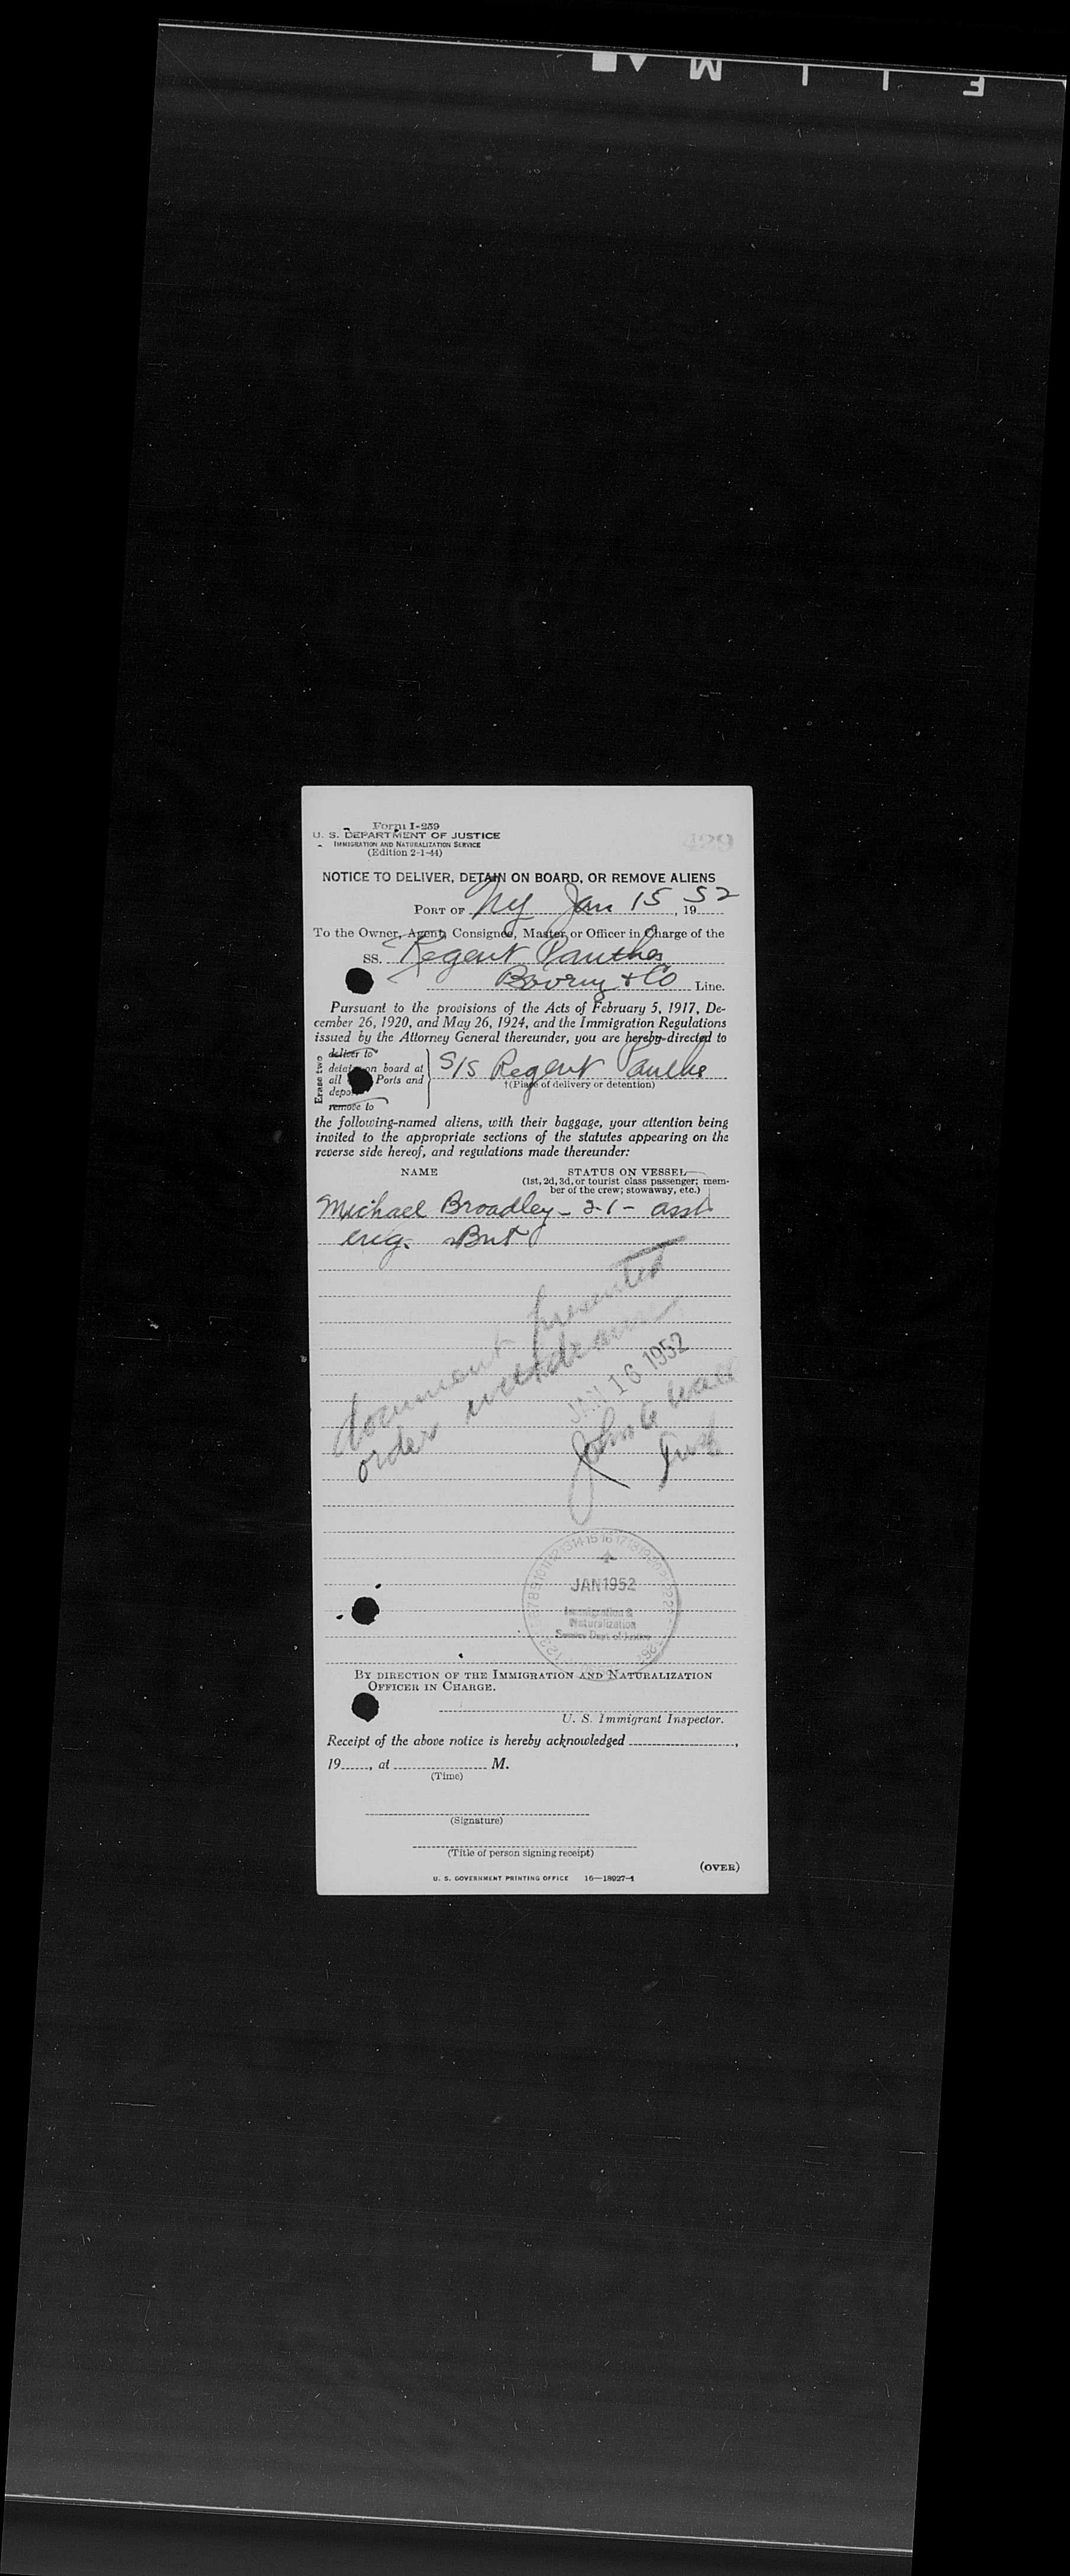 F I L M
Form I-259
U. S. DEPARTMENT OF JUSTICE
IMMIGRATION AND NATURALIZATION SERVICE
(Edition 2-1-44)
429
NOTICE TO DELIVER, DETAIN ON BOARD, OR REMOVE ALIENS
PORT OF NY Jan 15, 1952
To the Owner, Agent, Consignee, Master, or Officer in Charge of the
SS. Regent Panther
& Co Line.
Pursuant to the provisions of the Acts of February 5, 1917, De-
cember 26, 1920, and May 26, 1924, and the Immigration Regulations
issued by the Attorney General thereunder, you are hereby directed to
Erase two
deliver to
detain on board at
all Ports and
depo
remove to
S/S Regent Panthe
†(Place of delivery or detention)
the following-named aliens, with their baggage, your attention being
invited to the appropriate sections of the statutes appearing on the
reverse side hereof, and regulations made thereunder:
NAME STATUS ON VESSEL
(1st, 2d, 3d, or tourist class passenger; mem-
ber of the crew; stowaway, etc.)
Michael Broadley - 3-1 - asst
eng. Brit
document presented
order withdrawn
JAN 16 1952
John
JAN 1952
Immigration &
Naturalization
Service Dept. of Justice
BY DIRECTION OF THE IMMIGRATION AND NATURALIZATION
OFFICER IN CHARGE.
U. S. Immigrant Inspector.
Receipt of the above notice is hereby acknowledged ,
19 , at M.
(Time)
(Signature)
(Title of person signing receipt)
(OVER)
U. S. GOVERNMENT PRINTING OFFICE 16—18927-1